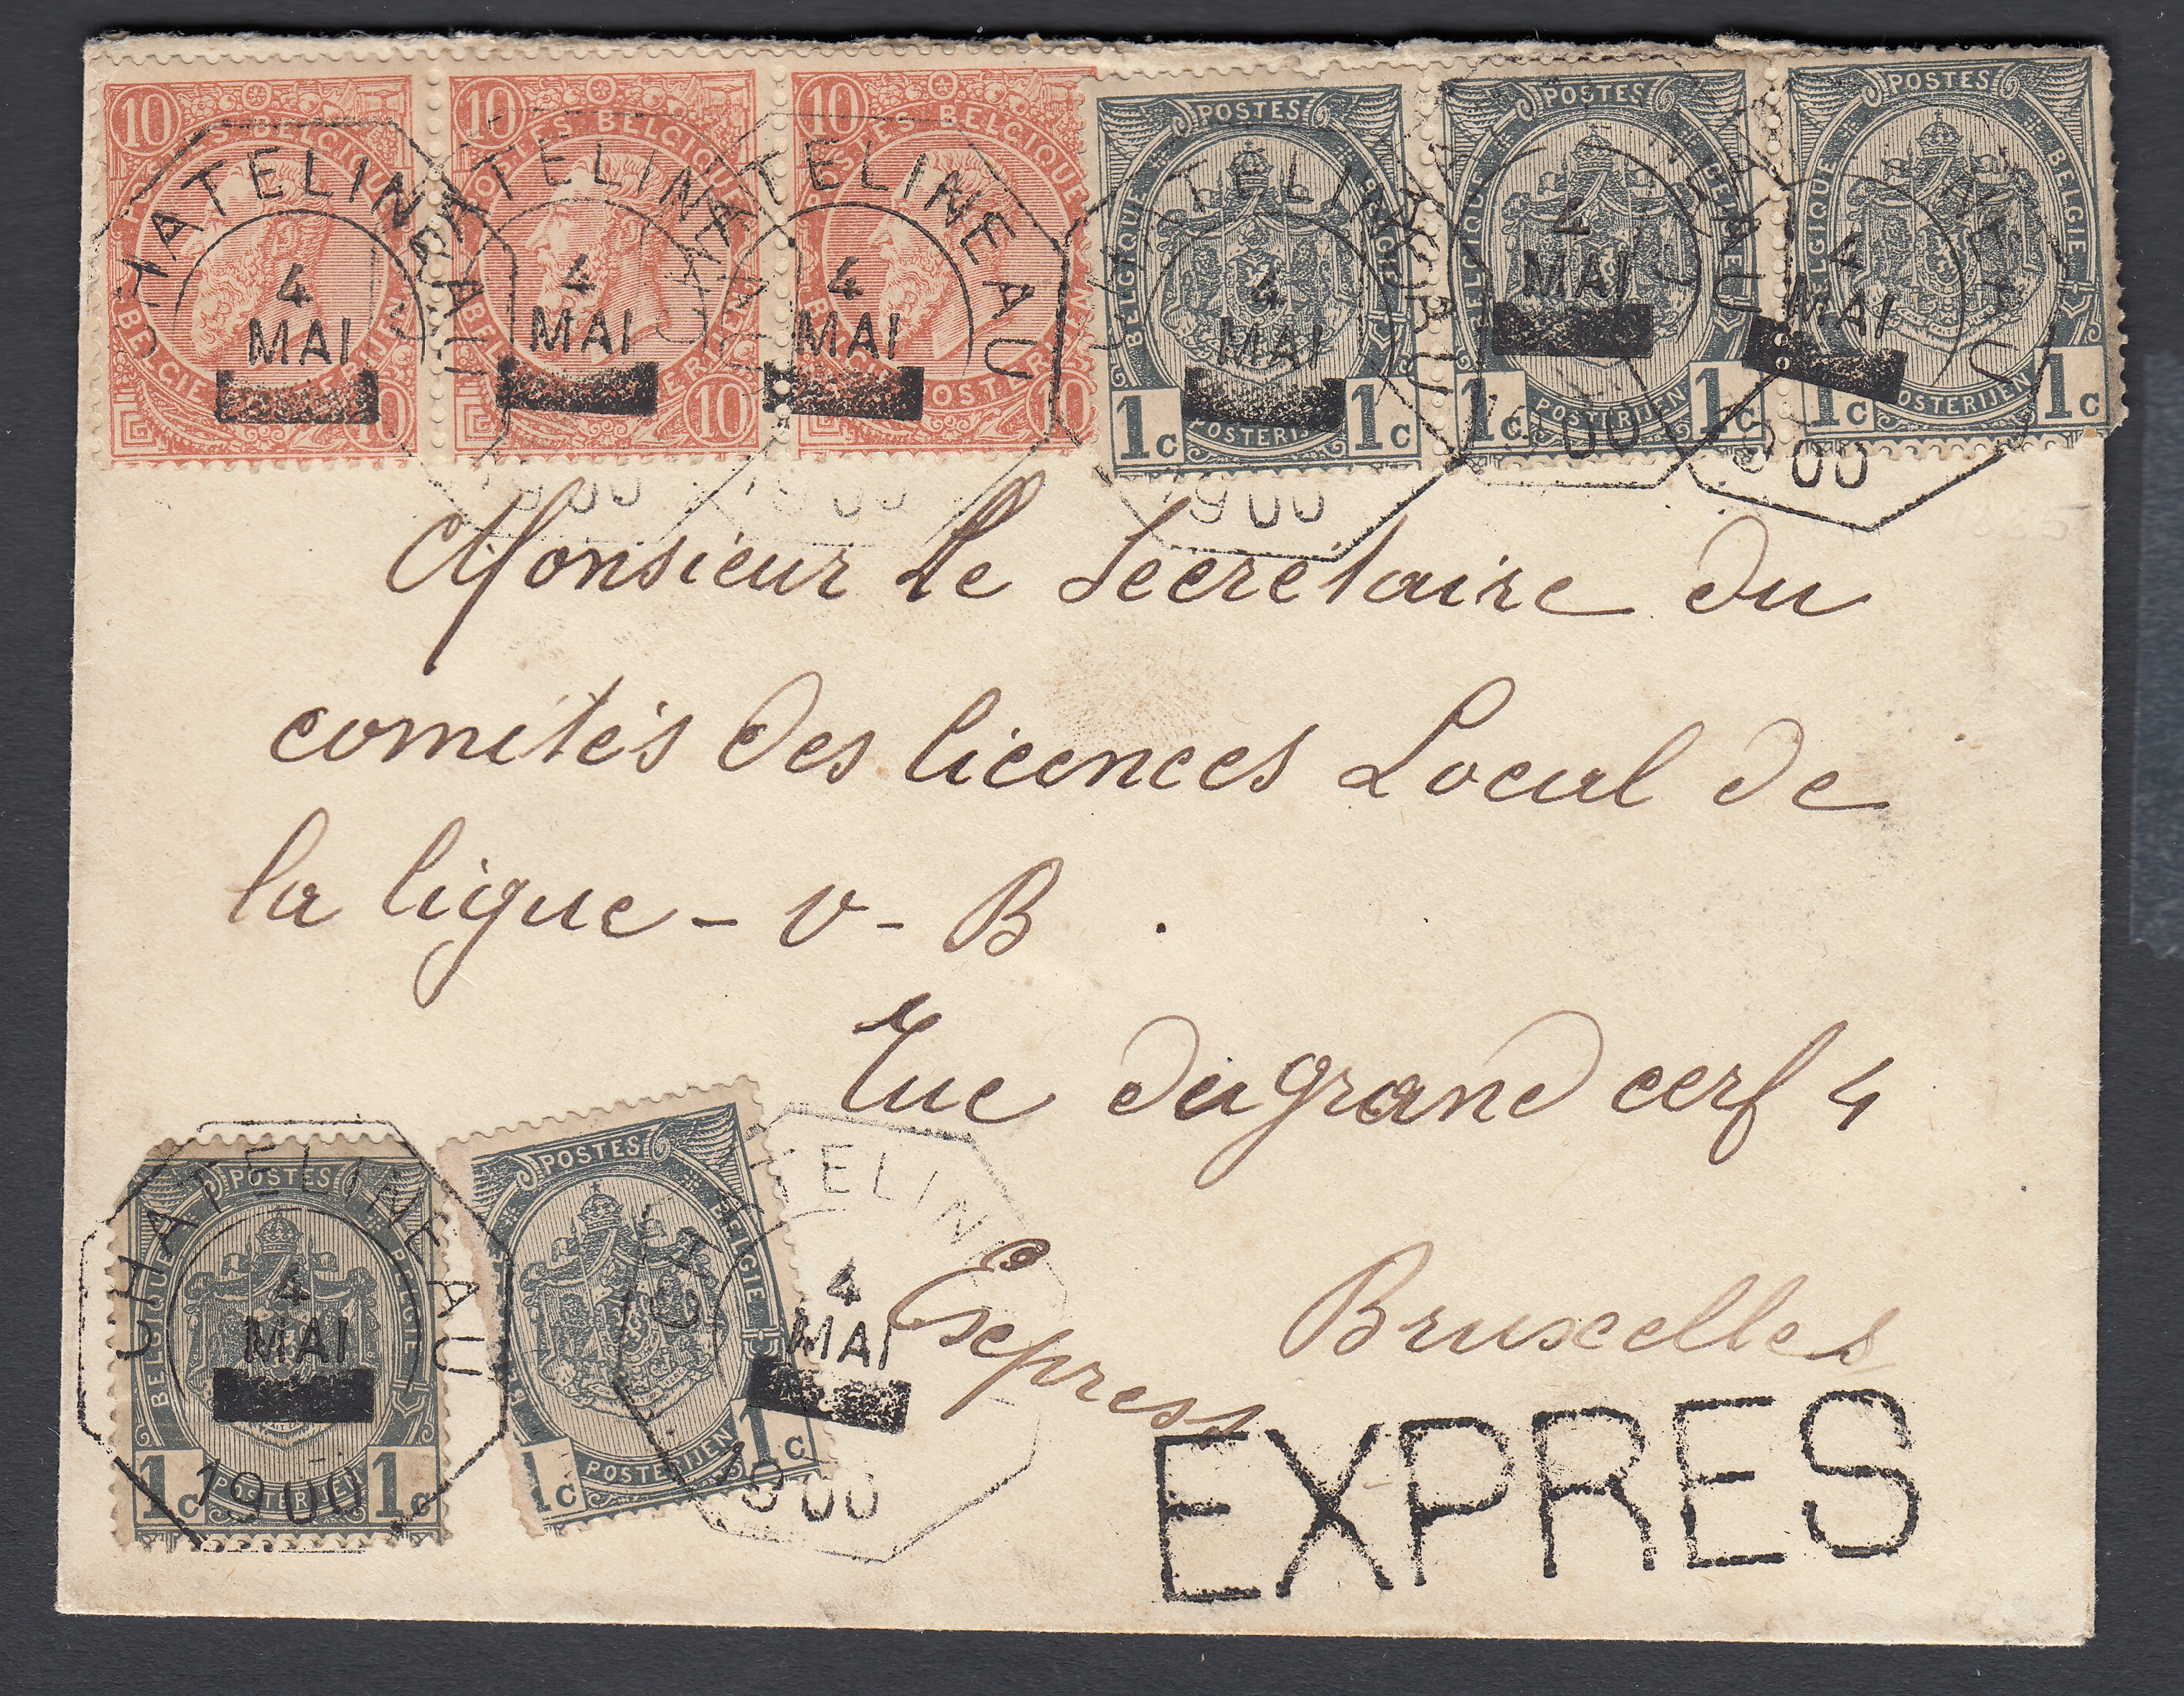 10 POSTES BELGIQUE BELGIE POSTERIJEN 10
10 POSTES BELGIQUE BELGIE POSTERIJEN 10
10 POSTES BELGIQUE BELGIE POSTERIJEN 10
POSTES BELGIQUE BELGIE 1c POSTERIJEN 1c
POSTES BELGIQUE BELGIE 1c POSTERIJEN 1c
POSTES BELGIQUE BELGIE 1c POSTERIJEN 1c
CHATELINEAU
4
MAI
CHATELINEAU
4
MAI
1900
CHATELINEAU
4
MAI
1900
CHATELINEAU
4
MAI
1900
CHATELINEAU
4
MAI
1900
CHATELINEAU
4
MAI
1900
Monsieur le Secrétaire du
comités des licences Local de
la ligue - v - B.
rue du grand cerf 4
Bruxelles
Express
EXPRES
POSTES BELGIQUE BELGIE 1c POSTERIJEN 1c
CHATELINEAU
4
MAI
1900
POSTES BELGIE 1c POSTERIJEN 1c
CHATELINEAU
4
MAI
1900